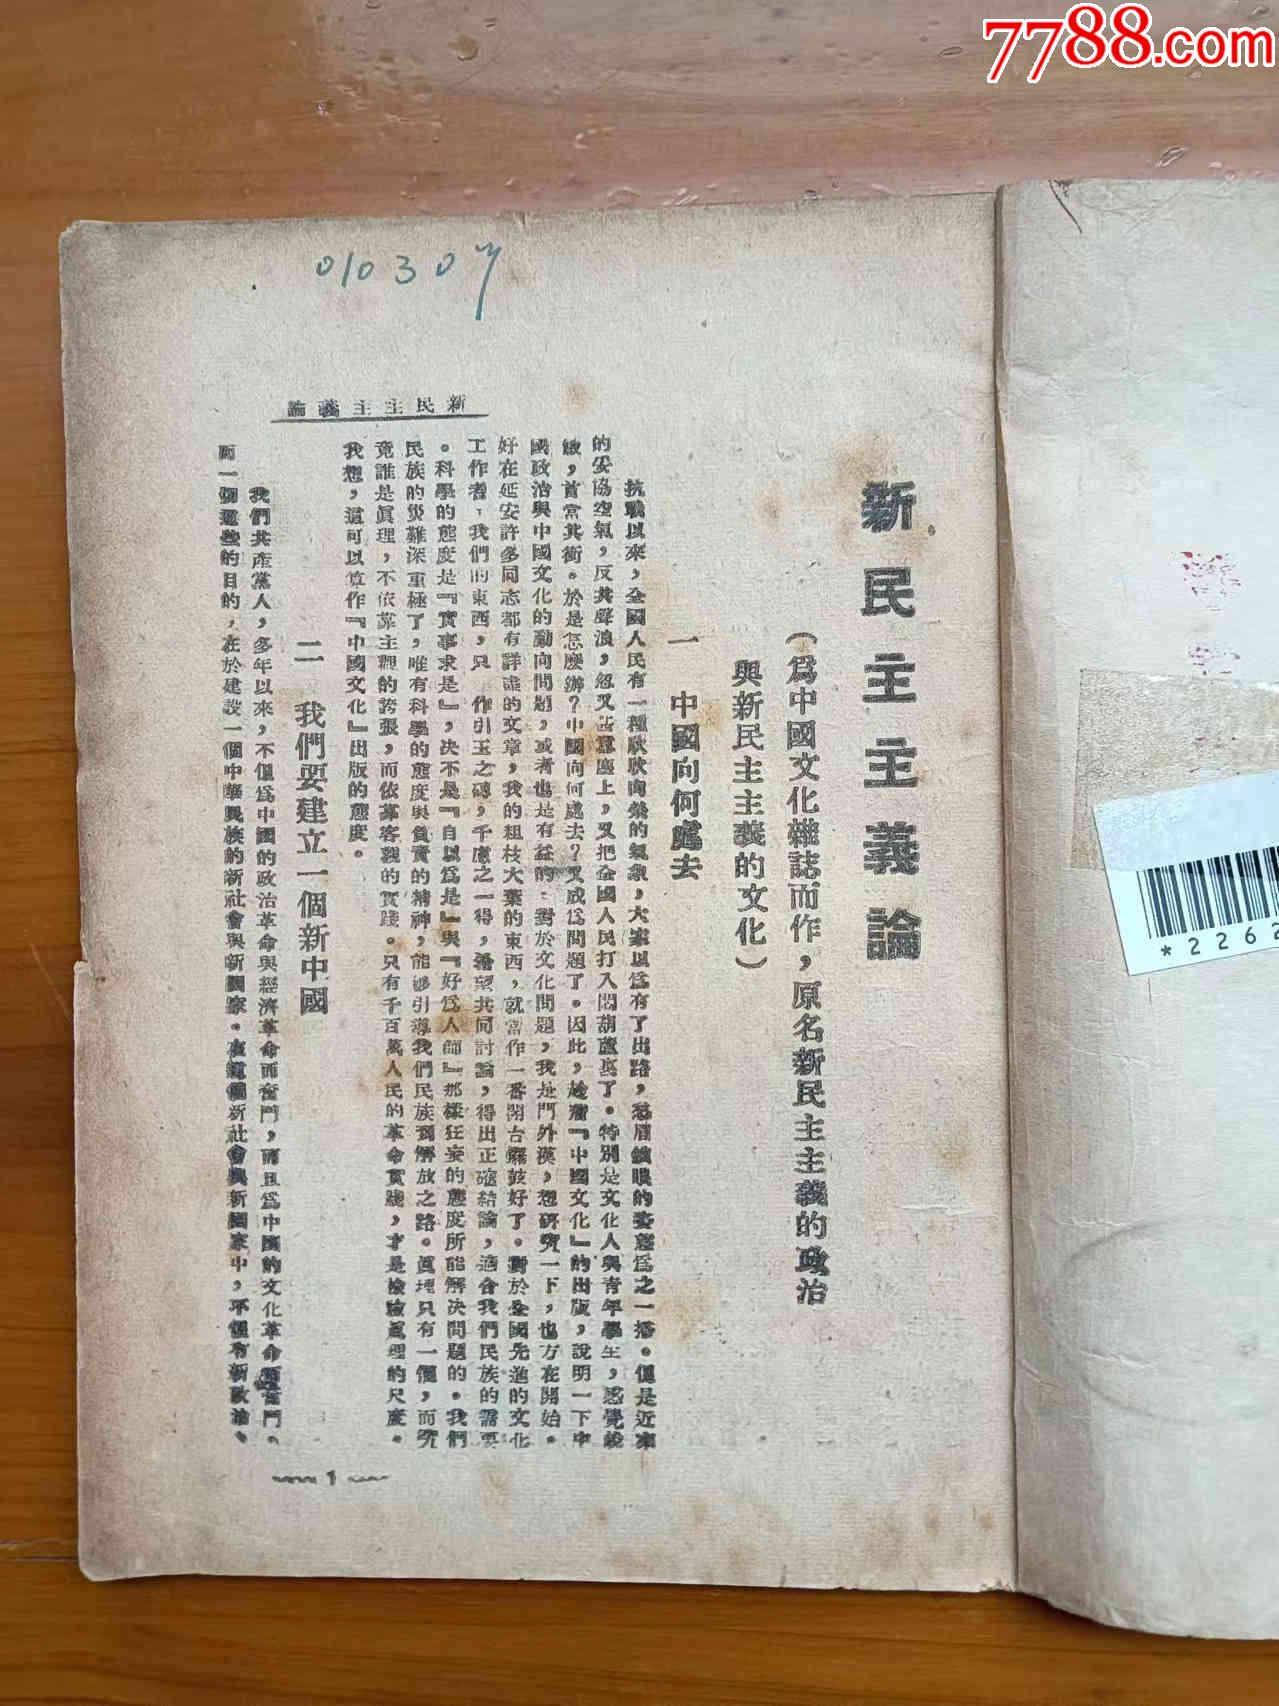 7788.com
010307
新民主主義論
新民主主義論
(爲中國文化雜誌而作，原名新民主主義的政治
與新民主主義的文化)
一 中國向何處去
抗戰以來，全國人民有一種欣欣向榮的氣象，大家以爲有了出路，愁眉鎖眼的姿態爲之一掃。但是近來
的妥協空氣，反共聲浪，忽又甚囂塵上，又把全國人民打入悶葫蘆裏了。特別是文化人與青年學生，感覺銳
敏，首當其衝。於是怎麼辦？中國向何處去？又成爲問題了。因此，趁着『中國文化』的出版，說明一下中
國政治與中國文化的動向問題，或者也是有益的。對於文化問題，我是門外漢，想研究一下，也方在開始。
好在延安許多同志都有詳盡的文章，我的粗枝大葉的東西，就當作一番開台鑼鼓好了。對於全國先進的文化
工作者，我們的東西，只 作引玉之磚，千慮之一得，希望共同討論，得出正確結論，適合我們民族的需要
。科學的態度是『實事求是』，決不是『自以爲是』與『好爲人師』那樣狂妄的態度所能解決問題的。我們
民族的災難深重極了，唯有科學的態度與負責的精神，能夠引導我們民族到解放之路。眞理只有一個，而究
竟誰是眞理，不依靠主觀的誇張，而依靠客觀的實踐。只有千百萬人民的革命實踐，才是檢驗眞理的尺度。
我想，這可以算作『中國文化』出版的態度。
二 我們要建立一個新中國
我們共產黨人，多年以來，不僅爲中國的政治革命與經濟革命而奮鬥，而且爲中國的文化革命而奮鬥。
而一個這些的目的，在於建設一個中華民族的新社會與新國家。在這個新社會與新國家中，不僅有新政治、
1
*2262